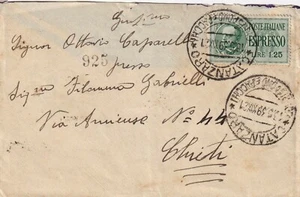 Signor Ottorio Caparelli
925
presso
Sig.na Filomena Gabrielli
Via Arniense No 44
Chieti
POSTE ITALIANE
ESPRESSO
LIRE 1.25
CATANZARO
CATANZARO